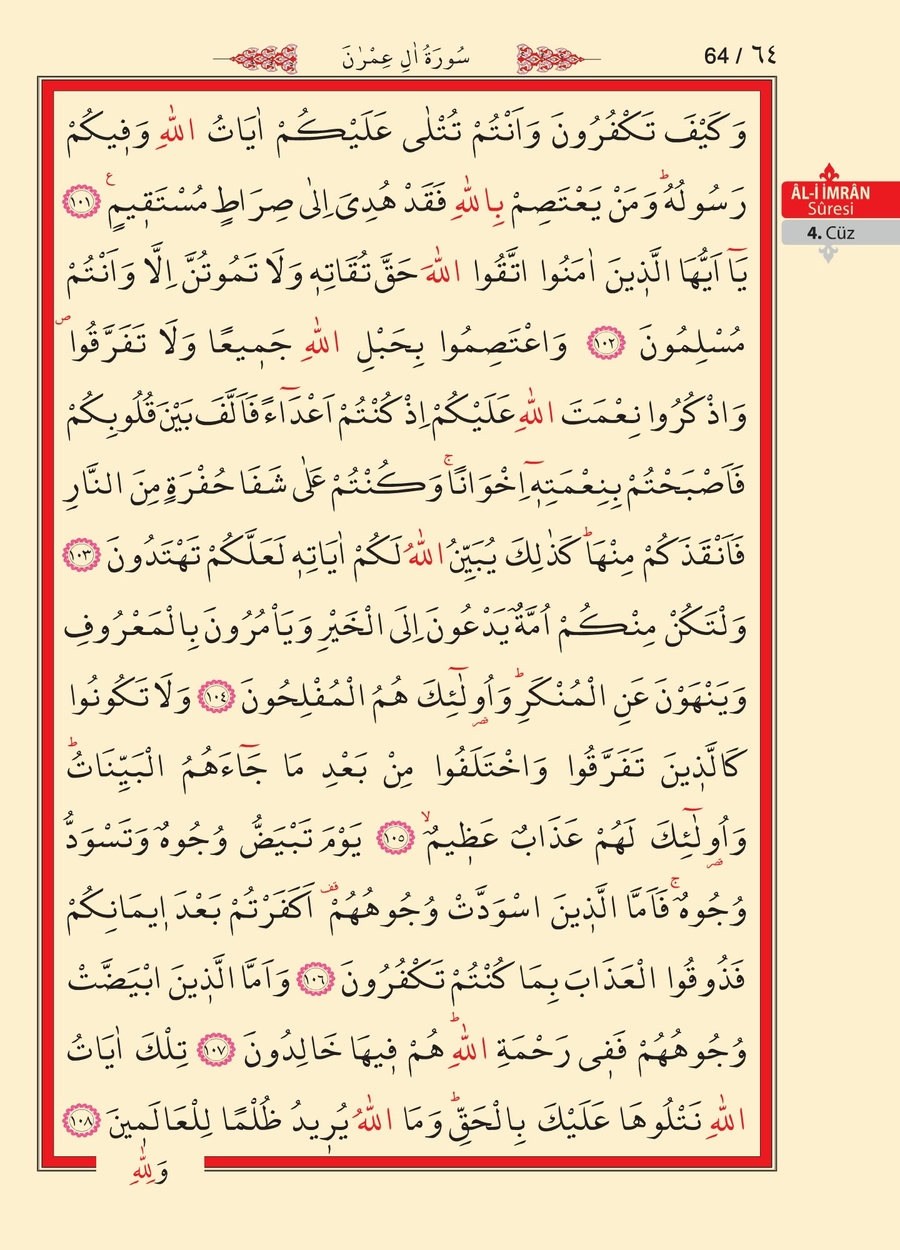 سُورَةُ اٰلِ عِمْرٰنَ
64 / ٦٤
ÂL-İ İMRÂN
Sûresi
4. Cüz
وَكَيْفَ تَكْفُرُونَ وَاَنْتُمْ تُتْلٰى عَلَيْكُمْ اٰيَاتُ اللّٰهِ وَف۪يكُمْ
رَسُولُهُۜ وَمَنْ يَعْتَصِمْ بِاللّٰهِ فَقَدْ هُدِىَ اِلٰى صِرَاطٍ مُسْتَق۪يمٍ ع ﴿١٠١﴾
يَٓا اَيُّهَا الَّذ۪ينَ اٰمَنُوا اتَّقُوا اللّٰهَ حَقَّ تُقَاتِه۪ وَلَا تَمُوتُنَّ اِلَّا وَاَنْتُمْ
مُسْلِمُونَ ﴿١٠٢﴾ وَاعْتَصِمُوا بِحَبْلِ اللّٰهِ جَم۪يعًا وَلَا تَفَرَّقُوا ص
وَاذْكُرُوا نِعْمَتَ اللّٰهِ عَلَيْكُمْ اِذْ كُنْتُمْ اَعْدَٓاءً فَاَلَّفَ بَيْنَ قُلُوبِكُمْ
فَاَصْبَحْتُمْ بِنِعْمَتِه۪ٓ اِخْوَانًاۚ وَكُنْتُمْ عَلٰى شَفَا حُفْرَةٍ مِنَ النَّارِ
فَاَنْقَذَكُمْ مِنْهَاۜ كَذٰلِكَ يُبَيِّنُ اللّٰهُ لَكُمْ اٰيَاتِه۪ لَعَلَّكُمْ تَهْتَدُونَ ﴿١٠٣﴾
وَلْتَكُنْ مِنْكُمْ اُمَّةٌ يَدْعُونَ اِلَى الْخَيْرِ وَيَأْمُرُونَ بِالْمَعْرُوفِ
وَيَنْهَوْنَ عَنِ الْمُنْكَرِۜ وَاُو۬لٰٓئِكَ هُمُ الْمُفْلِحُونَ ﴿١٠٤﴾ وَلَا تَكُونُوا
كَالَّذ۪ينَ تَفَرَّقُوا وَاخْتَلَفُوا مِنْ بَعْدِ مَا جَٓاءَهُمُ الْبَيِّنَاتُۜ
وَاُو۬لٰٓئِكَ لَهُمْ عَذَابٌ عَظ۪يمٌۙ ﴿١٠٥﴾ يَوْمَ تَبْيَضُّ وُجُوهٌ وَتَسْوَدُّ
وُجُوهٌۚ فَاَمَّا الَّذ۪ينَ اسْوَدَّتْ وُجُوهُهُمْ قف اَكَفَرْتُمْ بَعْدَ ا۪يمَانِكُمْ
فَذُوقُوا الْعَذَابَ بِمَا كُنْتُمْ تَكْفُرُونَ ﴿١٠٦﴾ وَاَمَّا الَّذ۪ينَ ابْيَضَّتْ
وُجُوهُهُمْ فَف۪ى رَحْمَةِ اللّٰهِۜ هُمْ ف۪يهَا خَالِدُونَ ﴿١٠٧﴾ تِلْكَ اٰيَاتُ
اللّٰهِ نَتْلُوهَا عَلَيْكَ بِالْحَقِّۜ وَمَا اللّٰهُ يُر۪يدُ ظُلْمًا لِلْعَالَم۪ينَ ﴿١٠٨﴾
وَلِلّٰهِ